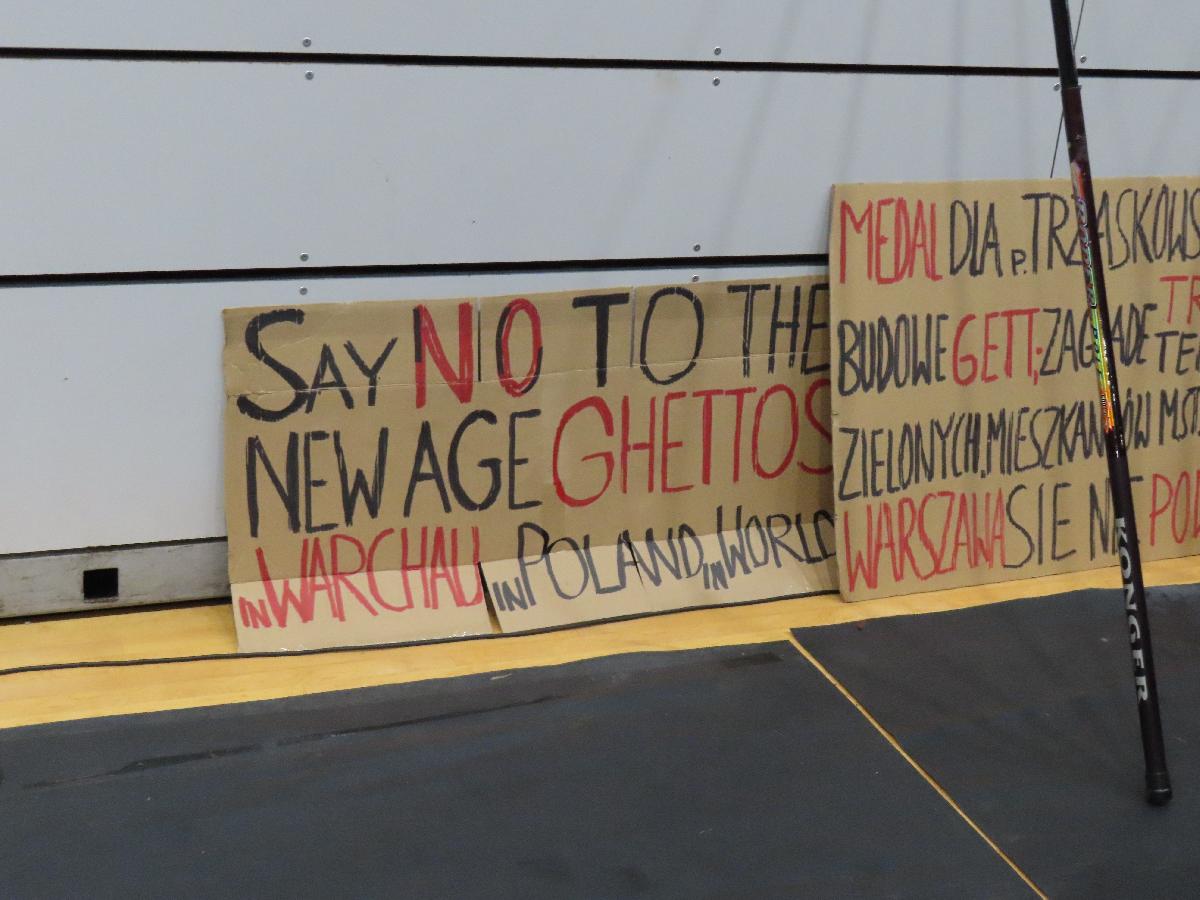 SAY NO TO THE
NEW AGE GHETTOS
IN WARCHAU IN POLAND, IN WORLD
MEDAL DLA P. TRZASKOWS
BUDOWE GETT, ZAGŁADE
ZIELONYCH, MIESZKANCÓW
WARSZAWA SIE NIE
KONGER